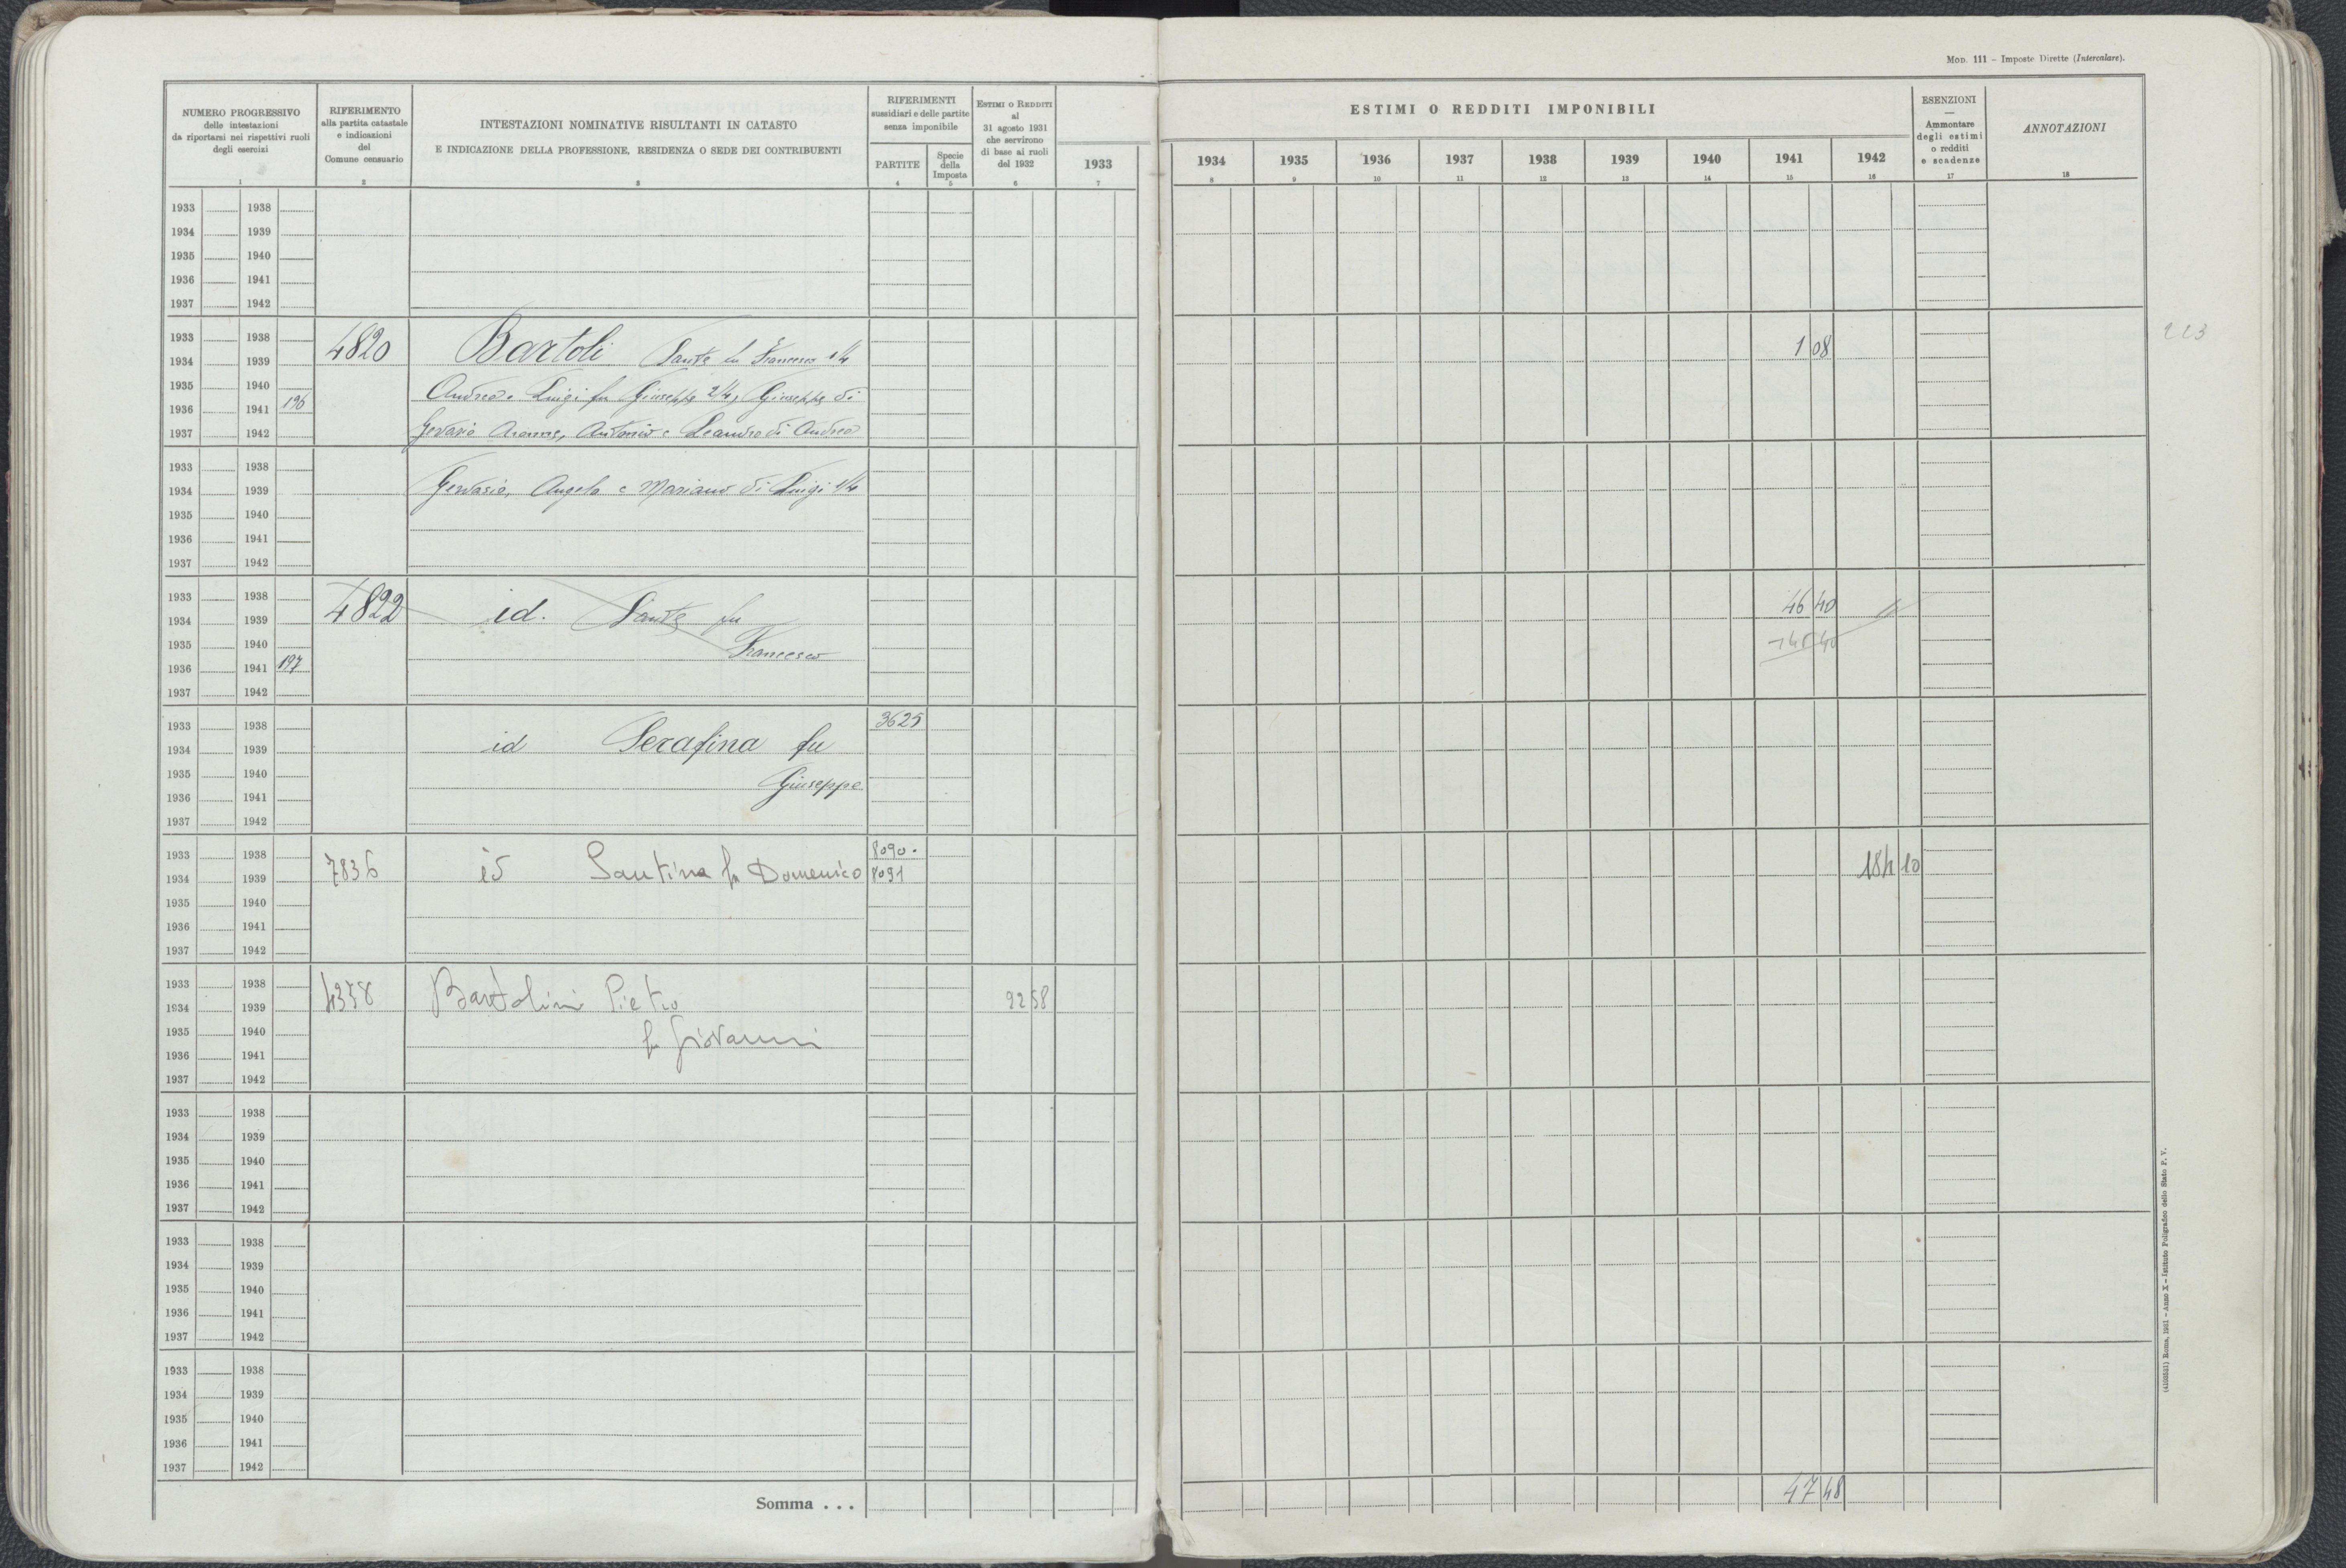 MOD. 111 – Imposte Dirette (Intercalare).
NUMERO PROGRESSIVO
delle intestazioni
da riportarsi nei rispettivi ruoli
degli esercizi
1
RIFERIMENTO
alla partita catastale
e indicazioni
del
Comune censuario
2
INTESTAZIONI NOMINATIVE RISULTANTI IN CATASTO
E INDICAZIONE DELLA PROFESSIONE, RESIDENZA O SEDE DEI CONTRIBUENTI
3
RIFERIMENTI
sussidiari e delle partite
senza imponibile
PARTITE
4
Specie
della
Imposta
5
ESTIMI O REDDITI
al
31 agosto 1931
che servirono
di base ai ruoli
del 1932
6
1933
7
ESTIMI O REDDITI IMPONIBILI
1934 1935 1936 1937 1938 1939 1940 1941 1942
8 9 10 11 12 13 14 15 16
ESENZIONI
—
Ammontare
degli estimi
o redditi
e scadenze
17
ANNOTAZIONI
18
1933 1938
1934 1939
1935 1940
1936 1941
1937 1942
1933 1938
1934 1939 4820 Bartoli Sante fu Francesco 1/4 1 08
223
1935 1940 Andrea e Luigi fu Giuseppe 2/4, Giuseppe di
1936 1941 196
1937 1942 Gervasio Antonio e Leandro di Andrea
1933 1938
1934 1939 Gervasio, Angelo e Mariano di Luigi 1/4
1935 1940
1936 1941
1937 1942
1933 1938
1934 1939 4822 id. Sante fu 46 40
1935 1940 Francesco
1936 1941 197
1937 1942
1933 1938 3625
1934 1939 id Serafina fu
1935 1940 Giuseppe
1936 1941
1937 1942
1933 1938 8090.
1934 1939 7836 id Santina fu Domenico 8091 184 10
1935 1940
1936 1941
1937 1942
1933 1938
1934 1939 4378 Bartolini Pietro 92 58
1935 1940 fu Giovanni
1936 1941
1937 1942
1933 1938
1934 1939
1935 1940
1936 1941
1937 1942
1933 1938
1934 1939
1935 1940
1936 1941
1937 1942
1933 1938
1934 1939
1935 1940
1936 1941
1937 1942
Somma . . . 47 48
(4100531) Roma, 1931 – Anno X – Istituto Poligrafico dello Stato P. V.